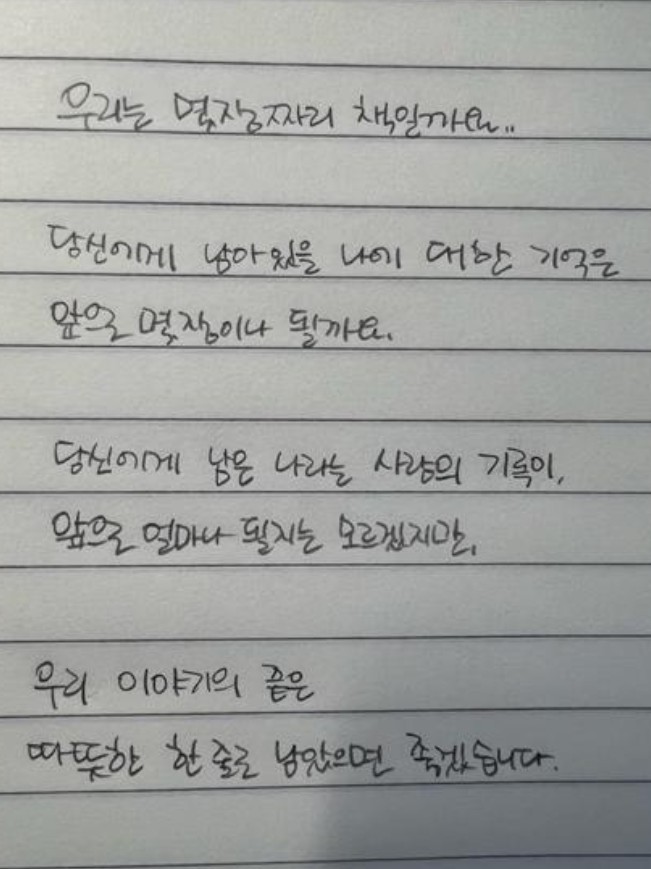 우리는 몇장짜리 책일까요..
당신에게 남아있을 나에 대한 기억은
앞으로 몇장이나 될까요.
당신에게 남은 나라는 사람의 기록이,
앞으로 얼마나 될지는 모르겠지만,
우리 이야기의 끝은
따뜻한 한 줄로 남았으면 좋겠습니다.